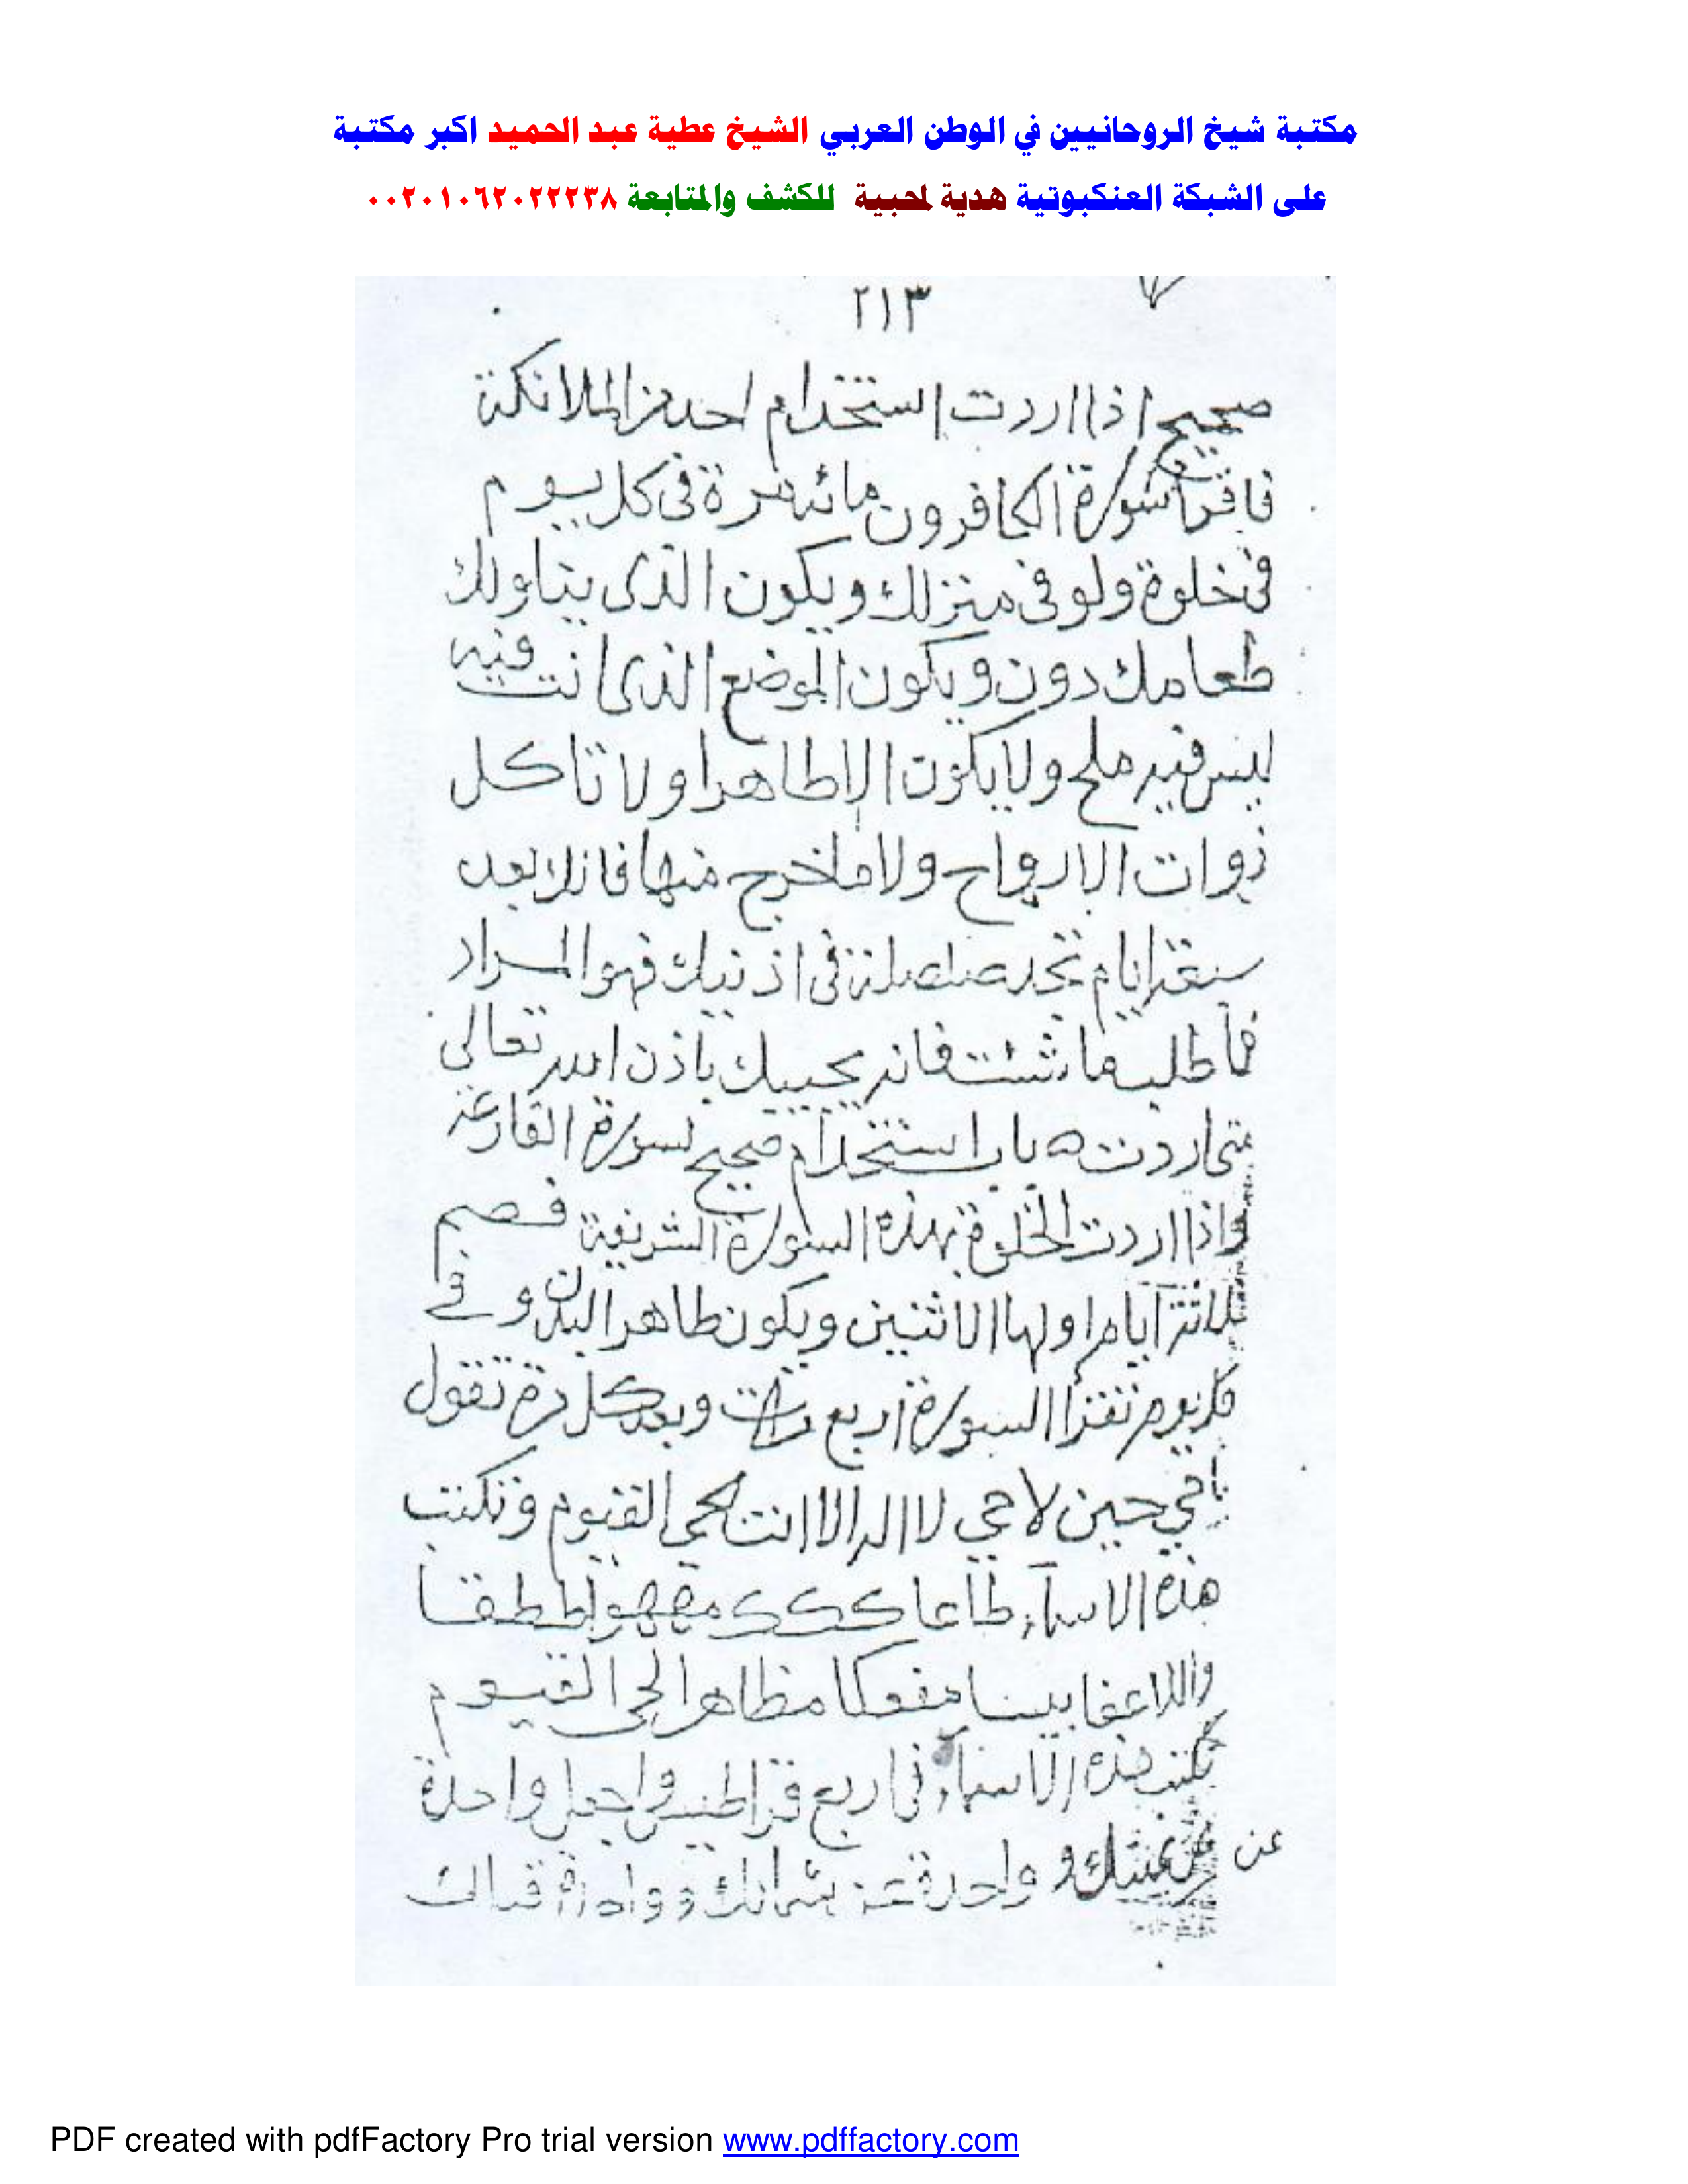 مكتبة شيخ الروحانيين في الوطن العربي الشيخ عطية عبد الحميد اكبر مكتبة
على الشبكة العنكبوتية هدية لمحبية للكشف والمتابعة ٠٠٢٠١٠٦٢٠٢٢٢٣٨
٢١٣
صحيح اذا اردت استخدام احد من الملائكة
فاقرأ سورة الكافرون مائة مرة فى كل يوم
فى خلوة ولو فى منزلك ويكون الذى يناولك
طعامك دون ويكون الموضع الذى انت فيه
ليس فيه ملح ولا يكون الا طاهرا ولا تاكل
ذوات الارواح ولا ما خرج منها فانك بعد
سبعة ايام تجد صلصلة فى اذنيك فهو المراد
فاطلب ما شئت فانه يجيبك باذن الله تعالى
متى اردت ه باب استخدام صحيح لسورة القارعة
واذا اردت الخلوة بهذه السورة الشريفة فصم
ثلاثة ايام اولها الاثنين ويكون طاهر البدن و فى
كل يوم تقرأ السورة اربع مرات وبعد كل مرة تقول
يا حي حين لا حي لا اله الا انت الحى القيوم وتكتب
هذه الاسماء طاعا
مظاهر الحى القيوم
تكتب هذه الاسماء فى اربع قراطيس واجعل واحدة
عن يمينك و واحدة عن شمالك وواحدة قبالك
PDF created with pdfFactory Pro trial version www.pdffactory.com